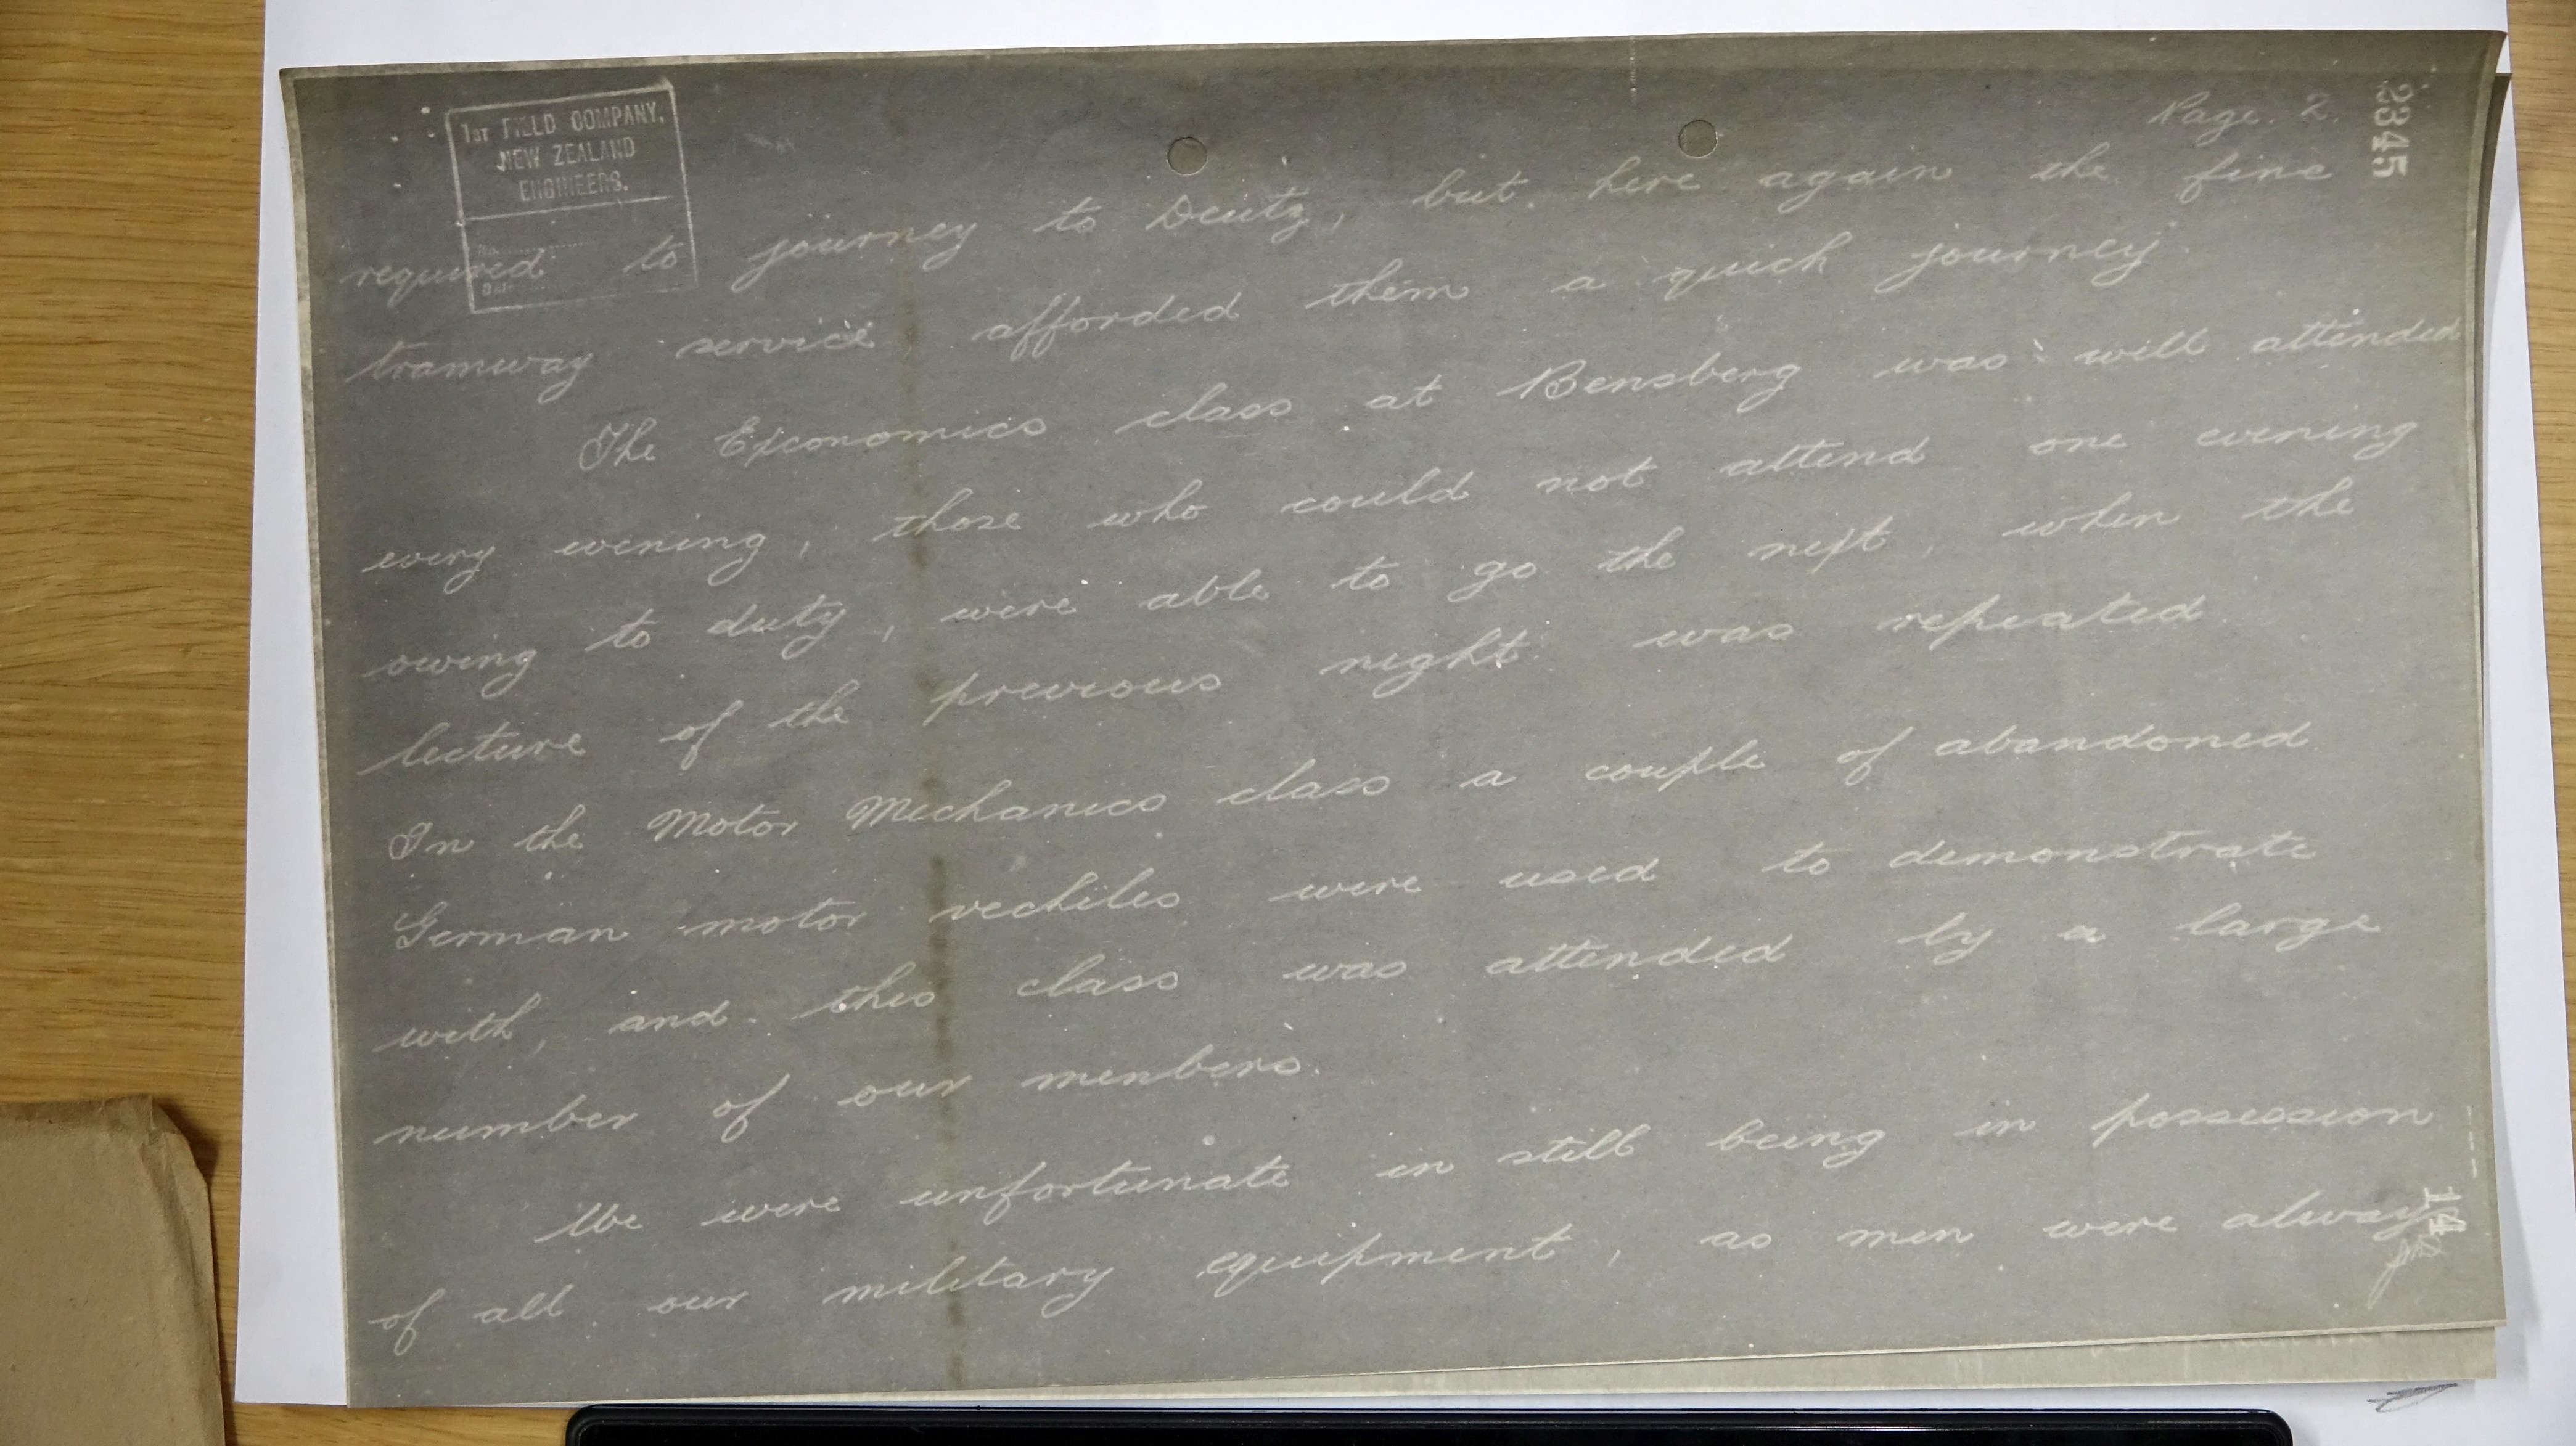 1ST FIELD COMPANY,
NEW ZEALAND
ENGINEERS.
No.
Date
Page. 2.
2345
required to journey to Deutz, but here again the fine
tramway service afforded them a quick journey.
The Economics class at Bensberg was well attended
every evening, those who could not attend one evening
owing to duty, were able to go the next, when the
lecture of the previous night was repeated.
In the Motor Mechanics class a couple of abandoned
German motor vechiles were used to demonstrate
with, and this class was attended by a large
number of our menbers.
We were unfortunate in still being in possession
of all our military equipment, as men were always